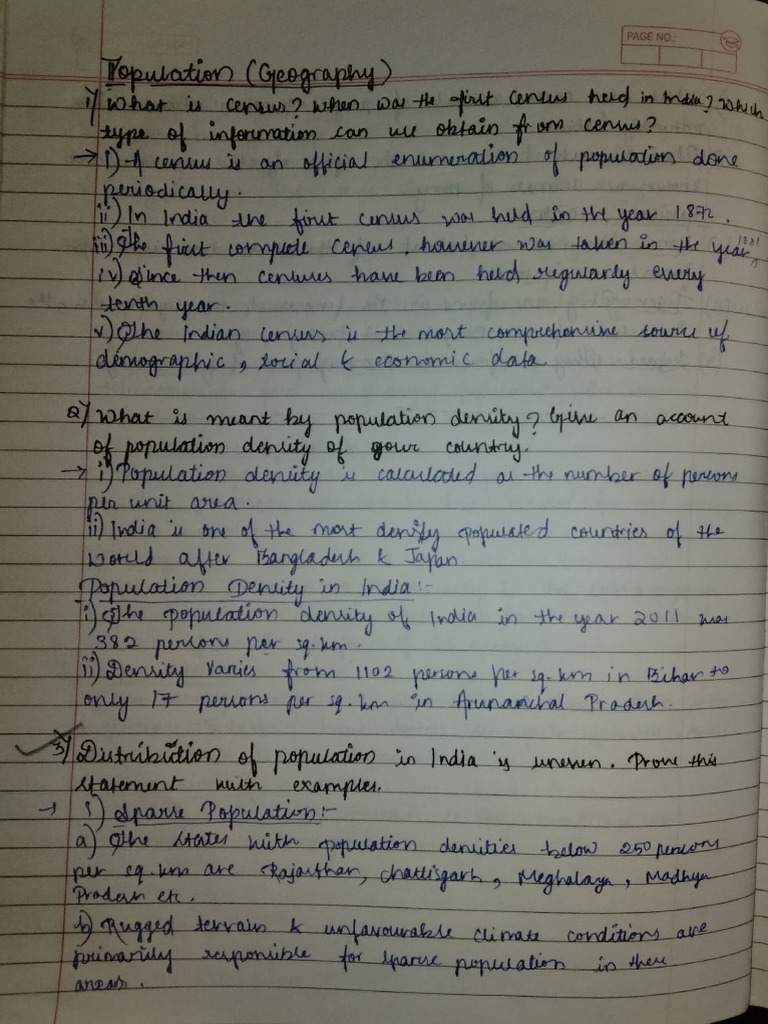 PAGE NO.:
Population (Geography)
1) What is census? When was the first census held in India? Which
type of information can we obtain from census?
→ i) A census is an official enumeration of population done
periodically.
ii) In India the first census was held in the year 1872.
iii) The first complete census, however was taken in the year 1881
iv) Since then censuses have been held regularly every
tenth year.
v) The Indian census is the most comprehensive source of
demographic, social & economic data.
2) What is meant by population density? Give an account
of population density of your country.
→ i) Population density is calculated as the number of persons
per unit area.
ii) India is one of the most densly populated countries of the
world after Bangladesh & Japan.
Population Density in India:-
i) The population density of India in the year 2011 was
382 persons per sq. km.
ii) Density varies from 1102 persons per sq. km in Bihar to
only 17 persons per sq. km in Arunanchal Pradesh.
3) Distribution of population in India is uneven. Prove this
statement with examples.
→ 1) Sparse Population:-
a) The states with population densities below 250 persons
per sq. km are Rajasthan, Chattisgarh, Meghalaya, Madhya
Pradesh etc.
b) Rugged terrain & unfavourable climate conditions are
primarily responsible for sparse population in these
areas.